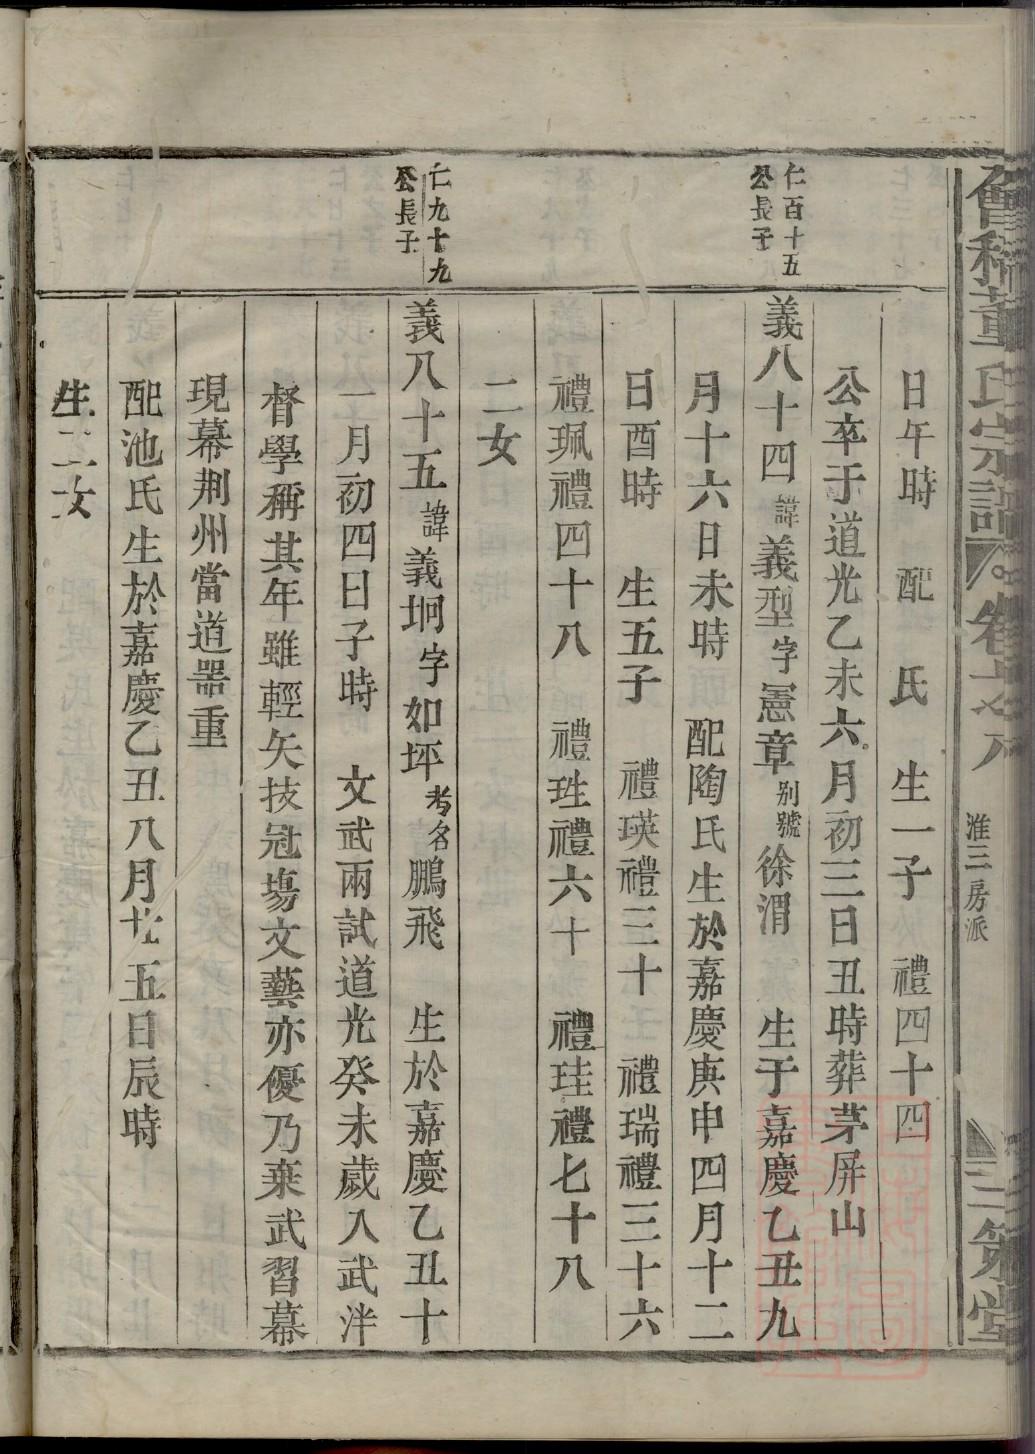 會稽董氏宗譜 卷 淮三房派
日午時 配 氏 生一子 禮四十四
公卒于道光乙未六月初三日丑時葬茅屏山
仁百十五
公長子
義八十四 諱義型字憲章別號徐渭 生于嘉慶乙丑九
月十六日未時 配陶氏生於嘉慶庚申四月十二
日酉時 生五子 禮瑛禮三十 禮瑞禮三十六
禮珮禮四十八 禮珄禮六十 禮珪禮七十八
二女
仁九十九
公長子
義八十五 諱義坰字如坪考名鵬飛 生於嘉慶乙丑十
一月初四日子時 文武兩試道光癸未歲入武泮
督學稱其年雖輕矢技冠塲文藝亦優乃棄武習幕
現幕荆州當道器重
配池氏生於嘉慶乙丑八月廿五日辰時
生二女